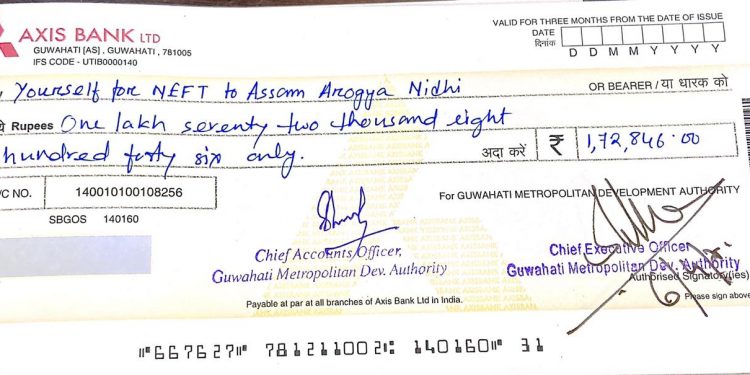 AXIS BANK LTD
GUWAHATI [AS] , GUWAHATI , 781005
IFS CODE - UTIB0000140
VALID FOR THREE MONTHS FROM THE DATE OF ISSUE
DATE
दिनांक
D D M M Y Y Y Y
Yourself for NEFT to Assam Arogya Nidhi
OR BEARER / या धारक को
Rupees One lakh seventy two thousand eight
hundred forty six only.
अदा करें ₹ 1,72,846.00
/C NO. 140010100108256
SBGOS 140160
For GUWAHATI METROPOLITAN DEVELOPMENT AUTHORITY
Chief Accounts Officer,
Guwahati Metropolitan Dev. Authority
Chief Executive Officer
Guwahati Metropolitan Dev. Authority
Authorised Signatory(ies)
Please sign above
Payable at par at all branches of Axis Bank Ltd in India.
⑈667627⑈ 781211002⑆ 140160⑈ 31